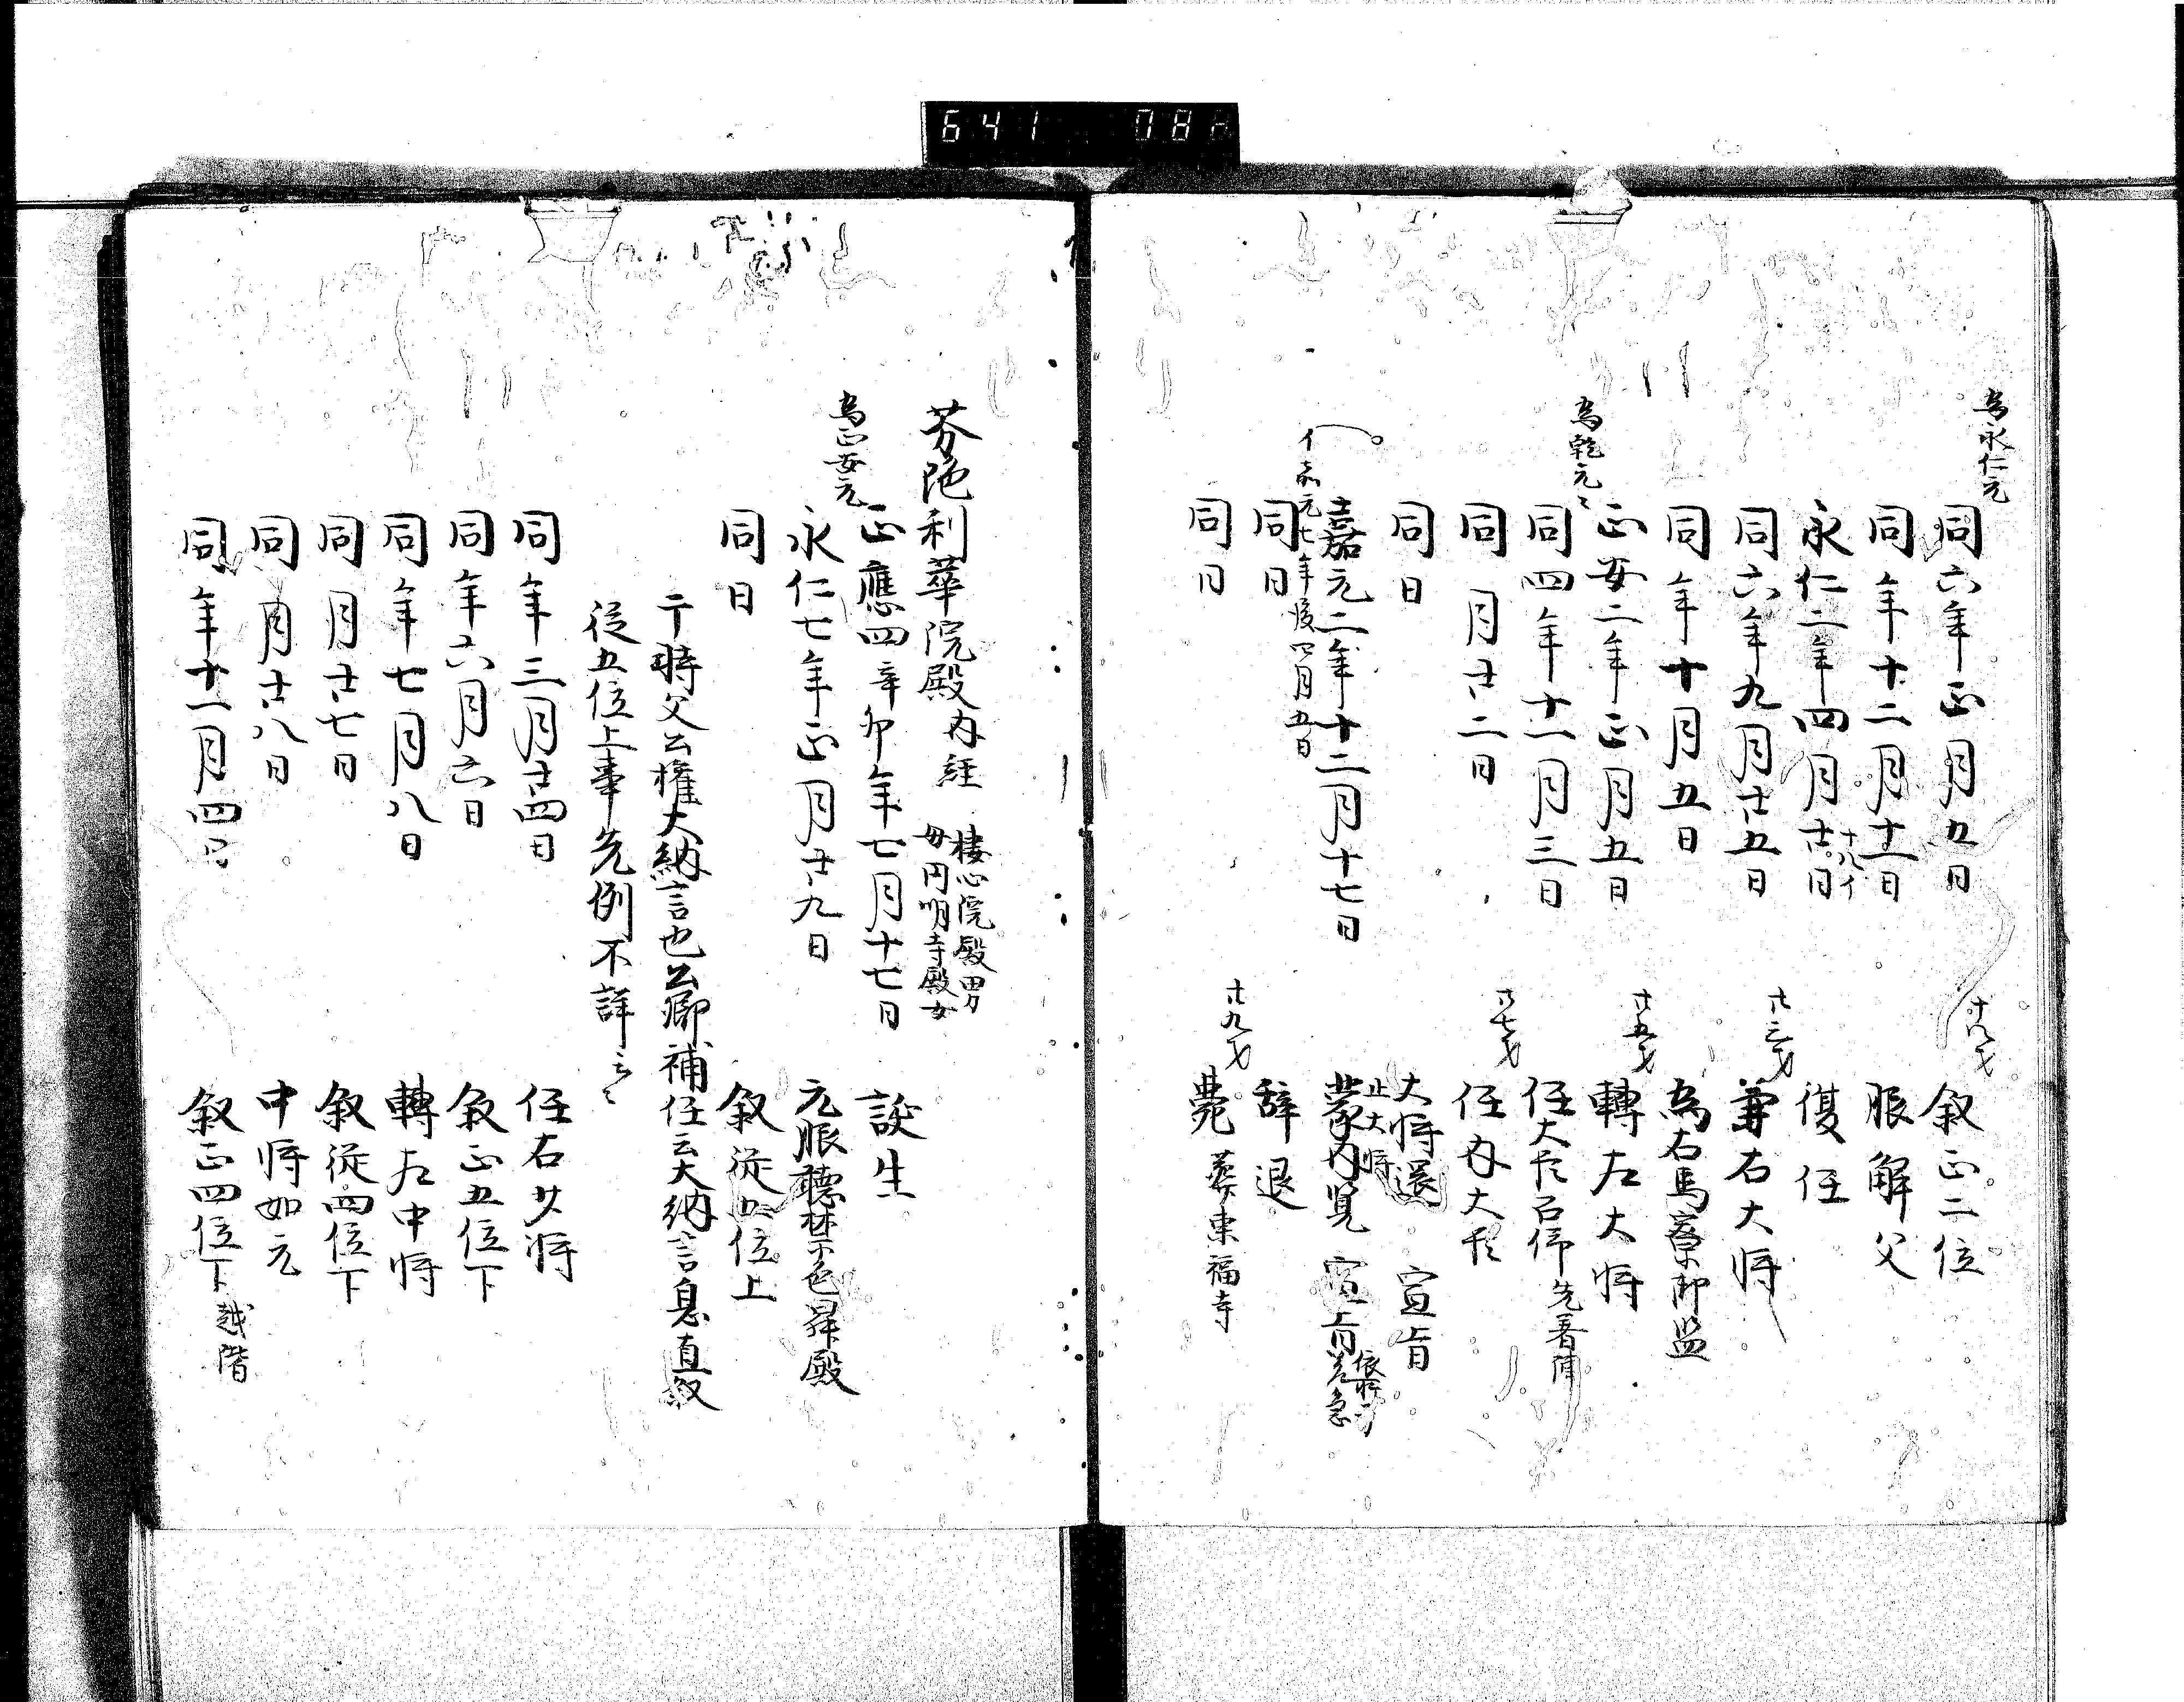 641 08
為永仁元
同六年正月九日 十八才 叙正二位
同年十二月十一日 服解父
永仁二年四月廿日 十八イ 復任
同六年九月廿五日 廿三才 兼右大将
同年十月五日 為右馬寮御監
正安二年正月五日 廿五才 轉左大将
為乾元々
同四年十一月三日 任大臣召仰 先著陣
同月廿二日 廿七才 任内大臣
同日 大将還宣旨
嘉元二年十二月十七日 止大将 蒙内覧宣旨
イ嘉元七年後四月五日
同日 辞退
同日 廿九才 薨 葬東福寺
芬陀利華院殿 内経 棲心院殿男
母円明寺殿女
正應四辛卯年七月十七日 誕生
為正安元
永仁七年正月廿九日 元服聴禁色昇殿
同日 叙従五位上
于時父公権大納言也公卿補任云大納言息直叙
従五位上事先例不詳云々
同年三月廿四日 任右少将
同年六月六日 叙正五位下
同年七月八日 轉左中将
同月廿七日 叙従四位下
同月廿八日 中将如元
同年十一月四日 叙正四位下 越階